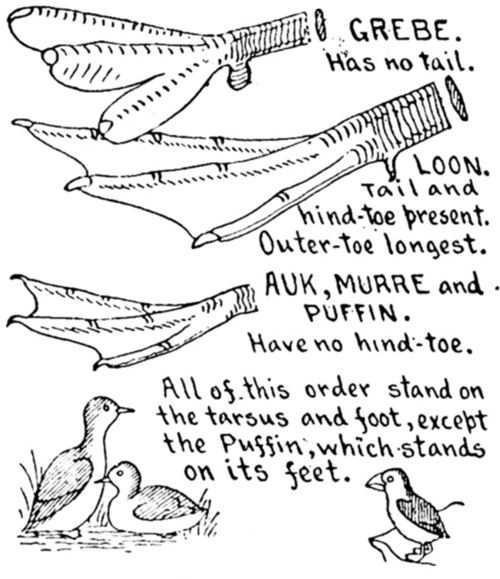 GREBE.
Has no tail.
LOON.
Tail and
hind-toe present.
Outer-toe longest.
AUK, MURRE and
PUFFIN.
Have no hind-toe.
All of this order stand on
the tarsus and foot, except
the Puffin, which stands
on its feet.